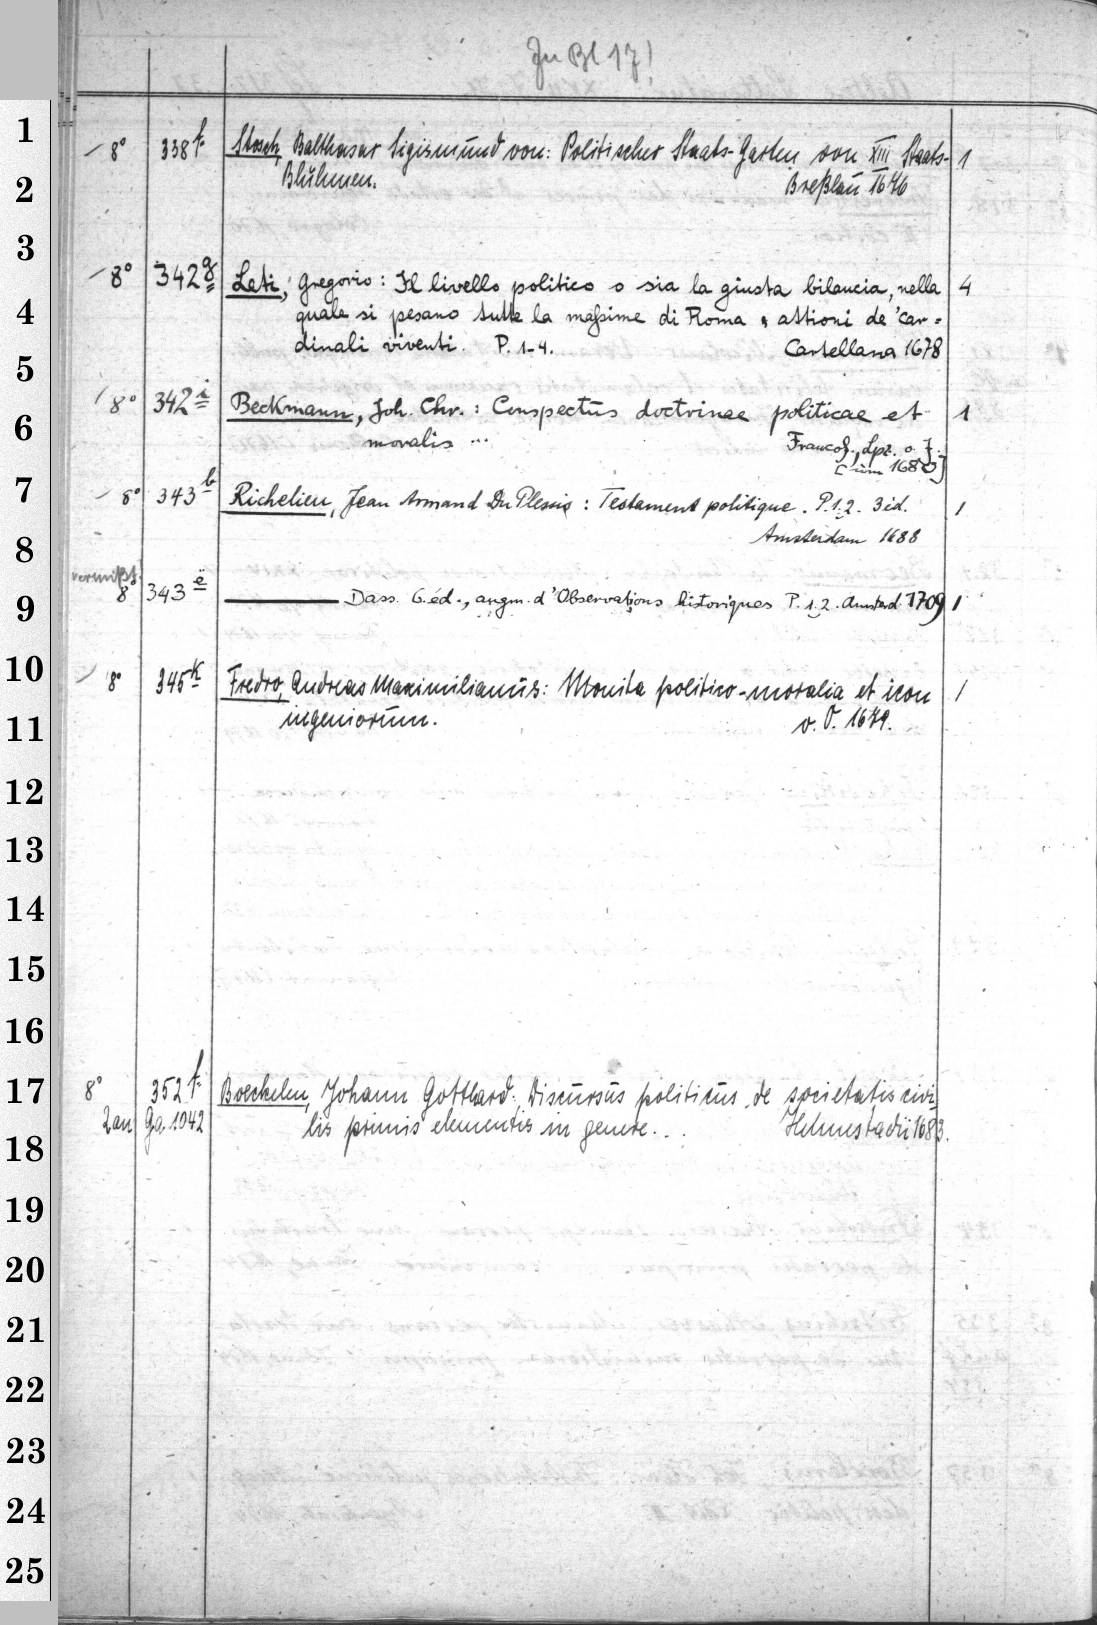 Zu Bl 17!
1
8° 338f. Stosch, Balthasar Sigismund von: Politischer Staats-Garten von XIII Staats- 1
2
Blühmen. Breßlau 1676
3
8° 342g Leti, Gregorio: Il livello politico o sia la giusta bilancia, nella 4
4
quale si pesano tutte la massime di Roma, attioni de'car=
5
dinali viventi. P. 1-4. Cartellana 1678
6
8° 342i Beckmann, Joh. Chr.: Conspectus doctrinae politicae et 1
moralis ... Francof., Lpz. o. J.
7
8° 343b Richelieu, Jean Armand Du Plessis: Testament politique. P.1.2. 3 éd. 1
8
Amsterdam 1688
vermißt
9
8° 343e ——— Dass. 6.éd., augm. d'Observations historiques P. 1.2. Amsterd. 1709 1
10
8° 345k Fredro, Andreas Maximilianus: Monita politico-moralia et icon 1
11
ingeniorum. o. O. 1679.
12
13
14
15
16
17
8° 352f. Boeckelen, Johann Gotthard: Discursus politicus de societatis civi
18
2 an Ga. 1042 lis primis elementis in genere... Helmstadii 1683.
19
20
21
22
23
24
25